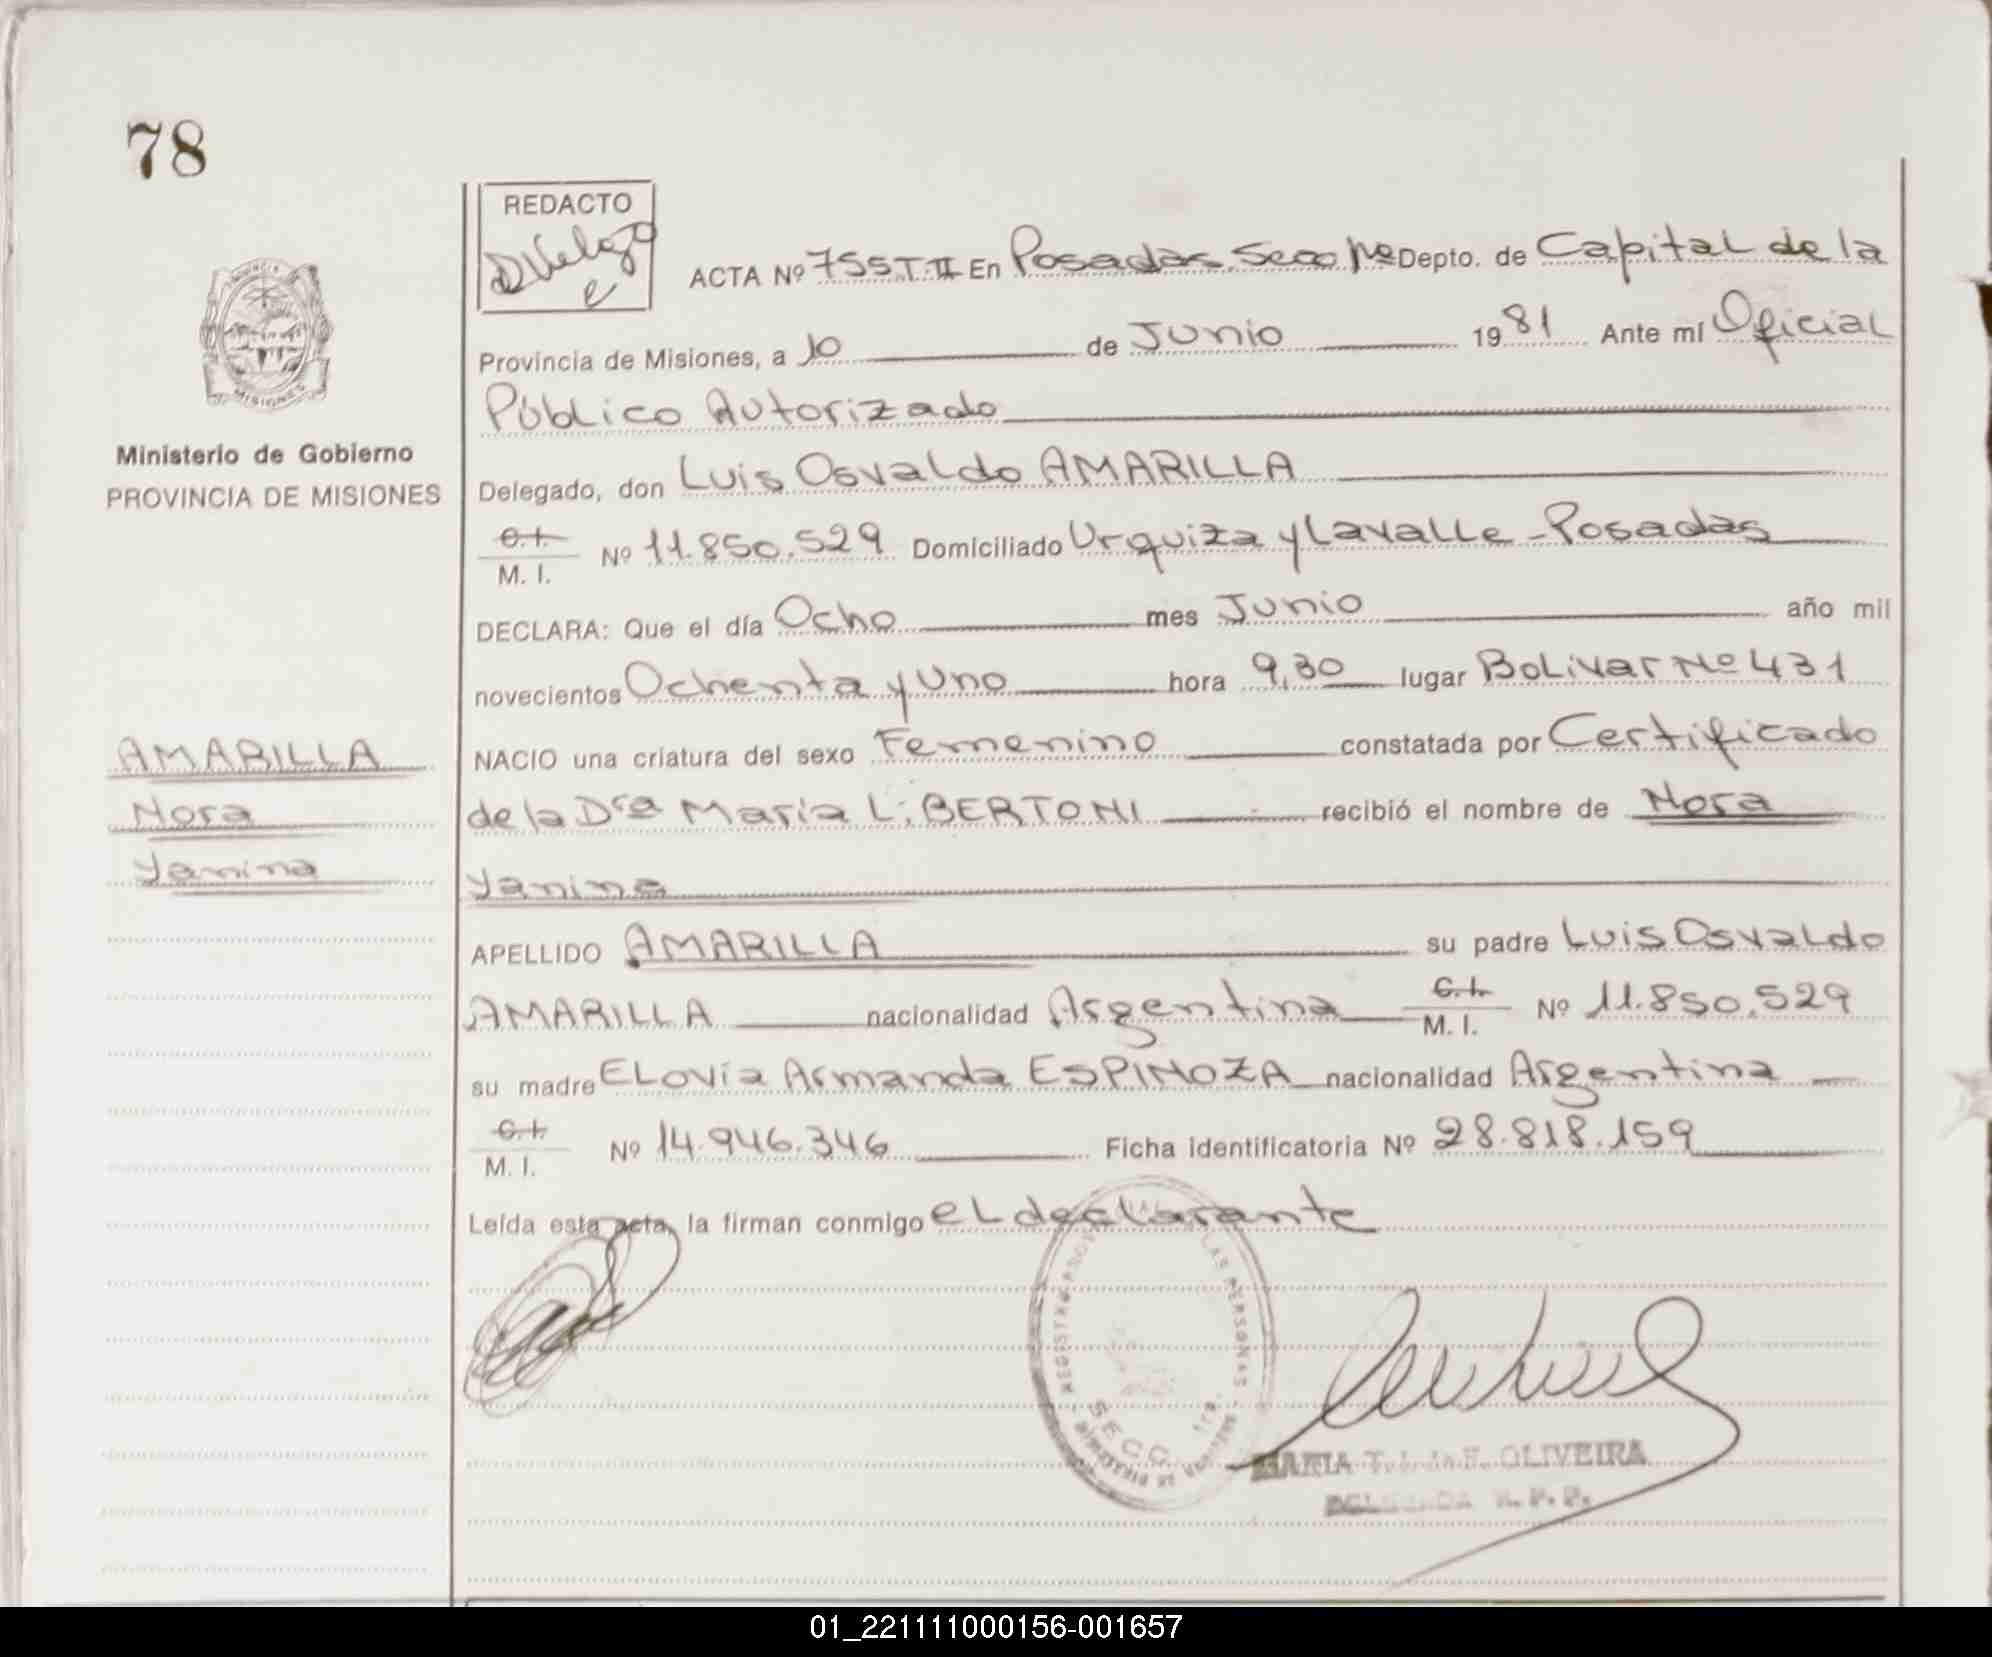 78
REDACTO
ACTA Nº 755 T. II En Posadas Secc 1ª Depto. de Capital de la
Provincia de Misiones, a 10 de Junio 1981 Ante mí Oficial
Público Autorizado
MISIONES
Ministerio de Gobierno
PROVINCIA DE MISIONES
Delegado, don Luis Osvaldo AMARILLA
C.I. M. I. Nº 11.850.529 Domiciliado Urquiza y Lavalle - Posadas
DECLARA: Que el día Ocho mes Junio año mil
novecientos Ochenta y Uno hora 9,30 lugar Bolivar Nº 431
AMARILLA
Nora
Yanina
NACIO una criatura del sexo Femenino constatada por Certificado
de la Dra María L. BERTONI recibió el nombre de Nora
Yanina
APELLIDO AMARILLA su padre Luis Osvaldo
AMARILLA nacionalidad Argentina C.I. M. I. Nº 11.850.529
su madre ELovia Armanda ESPINOZA nacionalidad Argentina
C.I. M. I. Nº 14.946.346 Ficha identificatoria Nº 28.818.159
Leída esta acta, la firman conmigo el declarante
REGISTRO LAS PERSONAS
SECC. 1ra.
MARIA T. OLIVEIRA
01_221111000156-001657